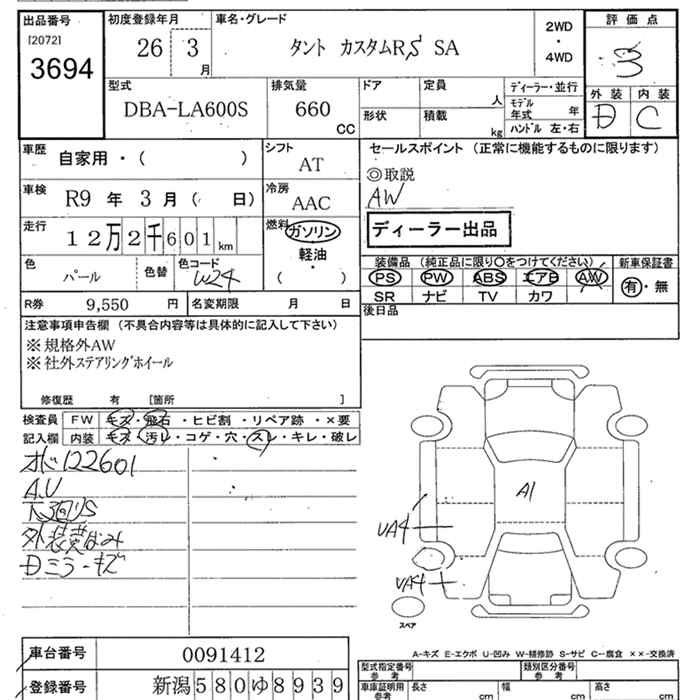 出品番号
[2072]
3694
初度登録年月
26 3 月
車名・グレード
タント カスタムRS SA
2WD
・
4WD
評価点
3
外装 内装
D C
型式
DBA-LA600S
排気量
660
CC
ドア
形状
定員
人
積載
kg
ディーラー・並行
モデル
年式 年
ハンドル 左・右
車歴
自家用・( )
シフト
AT
車検
R9 年 3 月 ( 日)
冷房
AAC
走行
12万2千601 km
燃料
ガソリン
軽油
・
( )
セールスポイント (正常に機能するものに限ります)
◎取説
AW
ディーラー出品
色
パール
色替
色コード
W24
装備品 (純正品に限り○をつけてください)
PS PW ABS エアB AW
SR ナビ TV カワ
新車保証書
有・無
R券 9,550 円
名変期限 月 日
後日品
注意事項申告欄 (不具合内容等は具体的に記入して下さい)
※規格外AW
※社外ステアリングホイール
修復歴 有 [箇所 ]
検査員
記入欄
FW キズ・飛石・ヒビ割・リペア跡・×要
内装 キズ・汚レ・コゲ・穴・スレ・キレ・破レ
122601
A.U
下回りS
外装
Dミラーキズ
A1
UA4
UA4
スペア
A-キズ E-エクボ U-凹み W-補修跡 S-サビ C-腐食 ××-交換済
車台番号 0091412
登録番号 新潟580ゆ8939
型式指定番号
参考
類別区分番号
参考
車庫証明用
参考
長さ cm
幅 cm
高さ cm